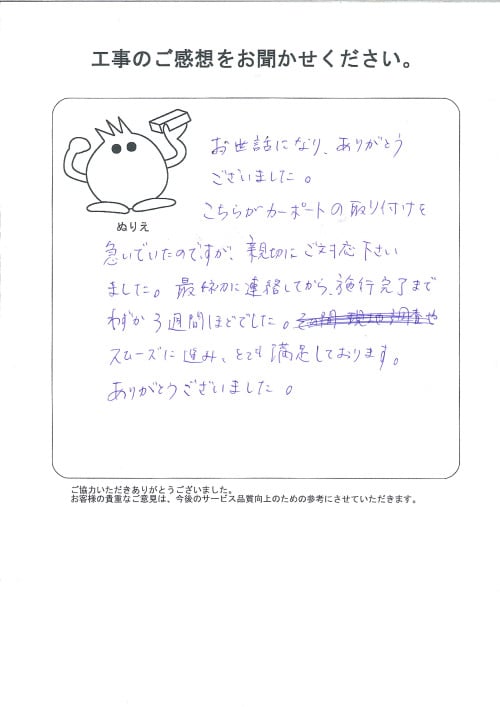 工事のご感想をお聞かせください。
お世話になり、ありがとう
ございました。
ぬりえ
こちらがカーポートの取り付けを
急いでいたのですが、親切にご対応下さい
ました。最初に連絡してから、施行完了まで
わずか3週間ほどでした。その間現地調査や
スムーズに進み、とても満足しております。
ありがとうございました。
ご協力いただきありがとうございました。
お客様の貴重なご意見は、今後のサービス品質向上のための参考にさせていただきます。